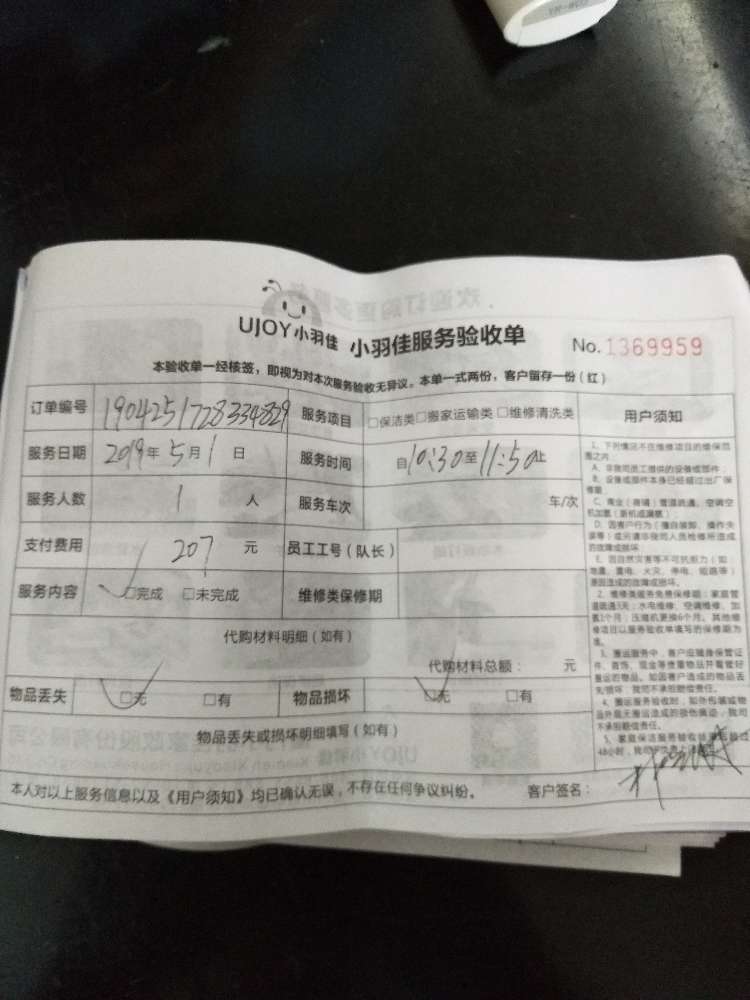 UJOY小羽佳 小羽佳服务验收单
No.1369959
本验收单一经核签，即视为对本次服务验收无异议。本单一式两份，客户留存一份（红）
订单编号 1904251728334829 服务项目 □保洁类□搬家运输类□维修清洗类 用户须知
服务日期 2019年5月1日 服务时间 自10:30至11:50止
服务人数 1 人 服务车次 车/次
支付费用 207 元 员工工号（队长）
服务内容 □完成 □未完成 维修类保修期
代购材料明细（如有）
代购材料总额： 元
物品丢失 □无 □有 物品损坏 □无 □有
物品丢失或损坏明细填写（如有）
1、下列情况不在维修项目的维保范
围之内：
A、非我司员工提供的设备或部件；
B、设备或部件本身已经超过出厂保
修期；
C、商业（商铺）管道疏通、空调空
D、因客户行为（擅自装卸、操作失
误等）或另请非我司人员检修所造成
的故障或损坏；
E、因自然灾害等不可抗拒力（如：
地震、雷电、火灾、停电、短路等）
原因造成的故障或损坏。
2、维修类服务免费保修期：家庭管
道疏通3天；水电维修、空调维修、加
氨1个月；压缩机更换6个月。其他维
修项目以服务验收单填写的保修期为
准。
3、搬运服务中，客户应随身保管证
件、首饰、现金等贵重物品并看管好
搬运的物品。如因客户造成的物品丢
失/损坏，我司不承担赔偿责任。
4、搬运服务验收时，如外包装或物
品外观无搬运造成的损伤痕迹，我司
不承担赔偿责任。
5、家庭保洁服务验收
48小时，我司
本人对以上服务信息以及《用户须知》均已确认无误，不存在任何争议纠纷。 客户签名：